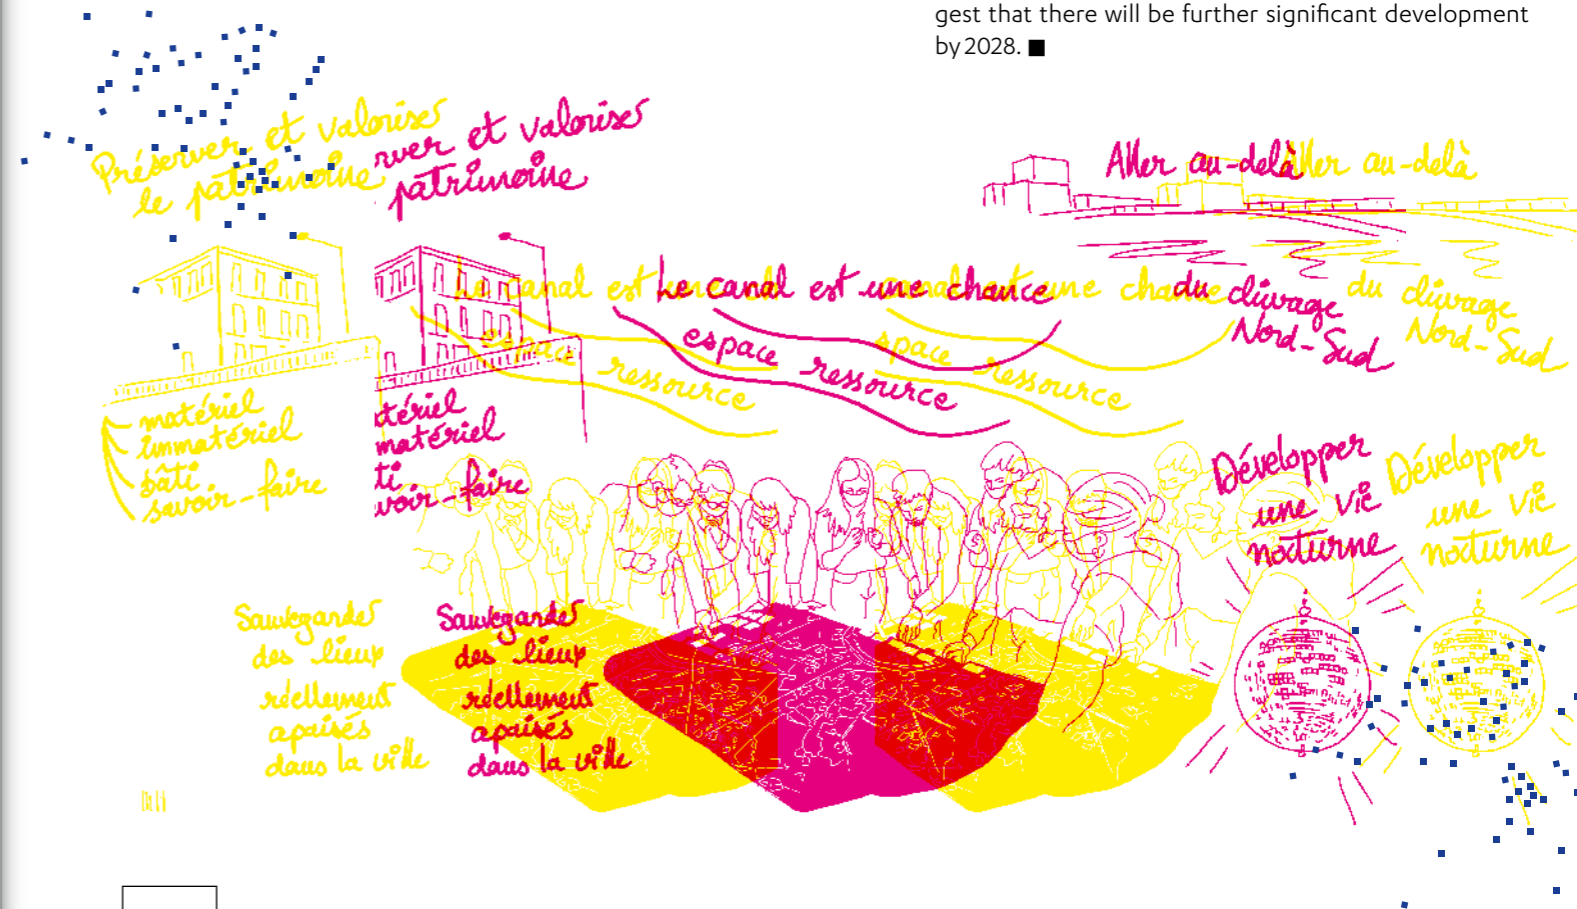 gest that there will be further significant development
by 2028. ■
Préserver et valoriser
le patrimoine
rver et valoriser
patrimoine
Aller au-delà
ller au-delà
Le canal est
Le canal est une chance
canal une chance
du clivage
Nord-Sud
du clivage
Nord-Sud
espace
ressource
espace
ressource
space
ressource
matériel
immatériel
bâti
savoir-faire
tériel
matériel
ti
voir-faire
Développer
une vie
nocturne
Développer
une vie
nocturne
Sauvegarder
des lieux
réellement
apaisés
dans la ville
Sauvegarder
des lieux
réellement
apaisés
dans la ville